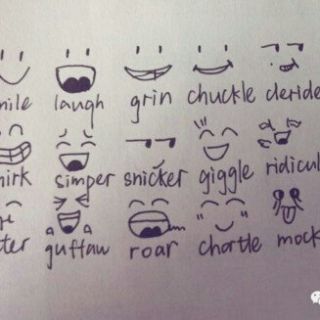 mile laugh grin chuckle deride
mirk simper snicker giggle ridicul
ter guffaw roar chortle mock